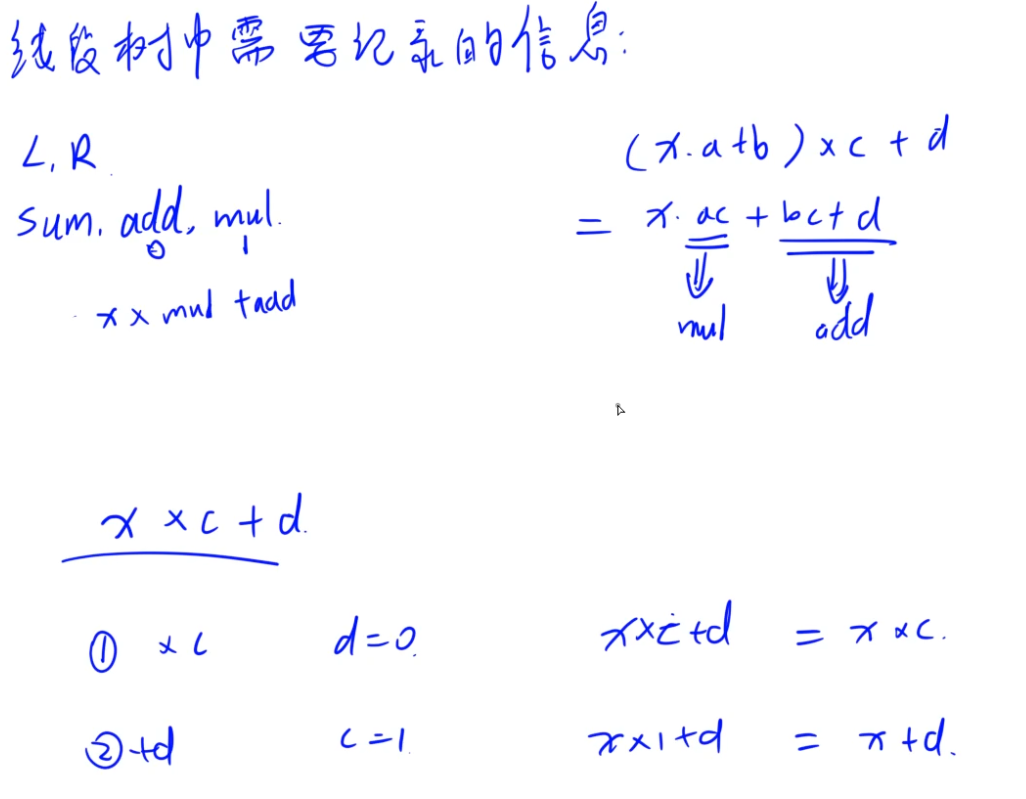 线段树中需要纪录的信息:
L, R
sum, add, mul.
0 1
x × mul + add
(x·a+b)×c+d
= x·ac+bc+d
mul add
x×c+d.
① ×c d=0. x×c+d = x×c.
② +d c=1. x×1+d = x+d.